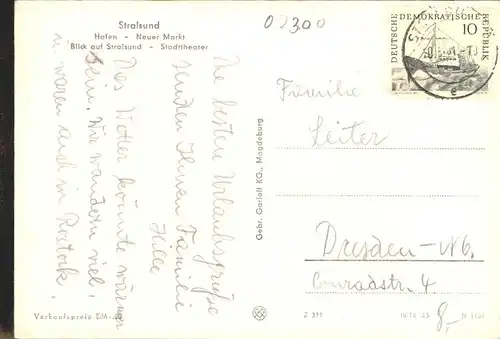 Stralsund
Hafen - Neuer Markt
Blick auf Stralsund - Stadttheater
02300
DEUTSCHE DEMOKRATISCHE REPUBLIK
10
Die besten Urlaubsgrüße
senden Ihnen Familie
Hille
Das Wetter könnte wärmer
sein. Wir wandern viel,
waren auch in Rostock.
Gebr. Garloff KG., Magdeburg
Familie
Leiter
Dresden-N6.
Conradstr. 4
Verkaufspreis DM
Z 371
IV 14 45
8,-